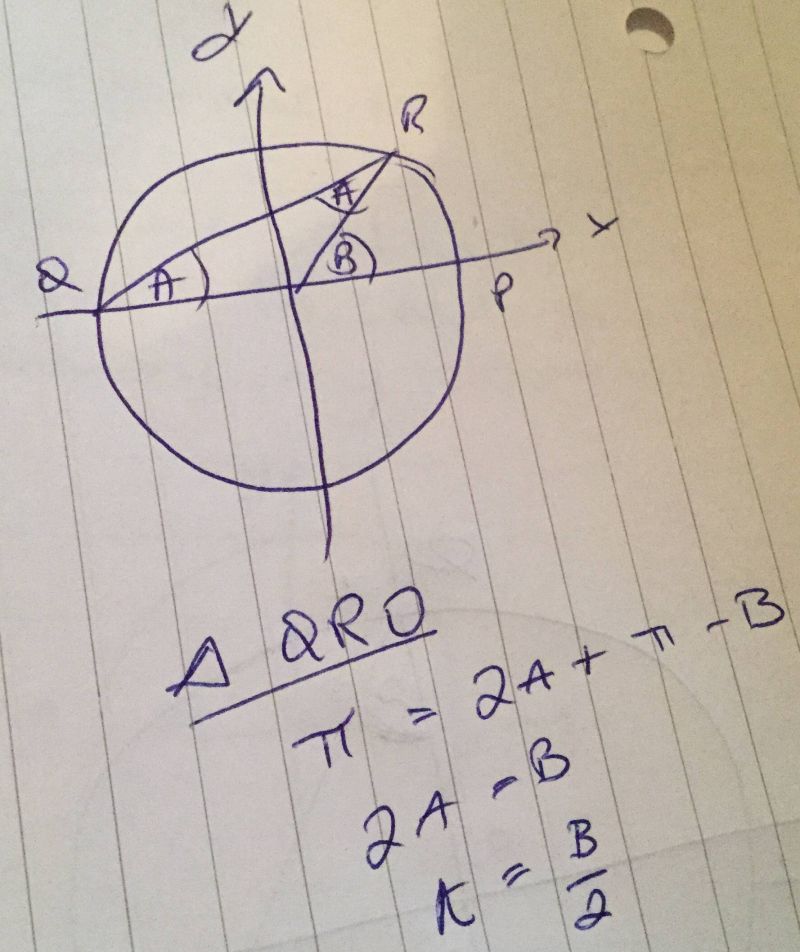 y
R
A
x
B
Q
A
P
Δ QRO
π = 2A + π - B
2A = B
A = B/2